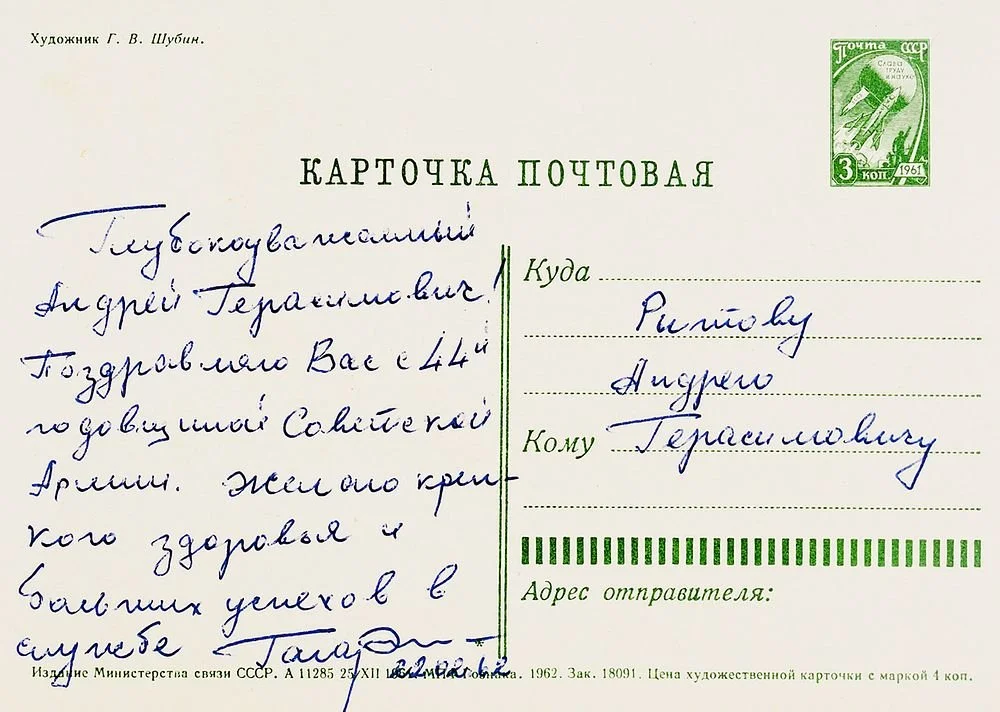 Художник Г. В. Шубин.
Почта СССР
СЛАВА
ТРУДУ
И НАУКЕ
3 коп 1961
КАРТОЧКА ПОЧТОВАЯ
Глубокоуважаемый
Андрей Герасимович!
Поздравляю Вас с 44й
годовщиной Советской
Армии. Желаю креп-
кого здоровья и
больших успехов в
службе Гагарин
22.02.62
Куда
Рытову
Андрею
Кому Герасимовичу
Адрес отправителя:
Издание Министерства связи СССР. А 11285 25/XII 1961. МПФ Гознака. 1962. Зак. 18091. Цена художественной карточки с маркой 4 коп.